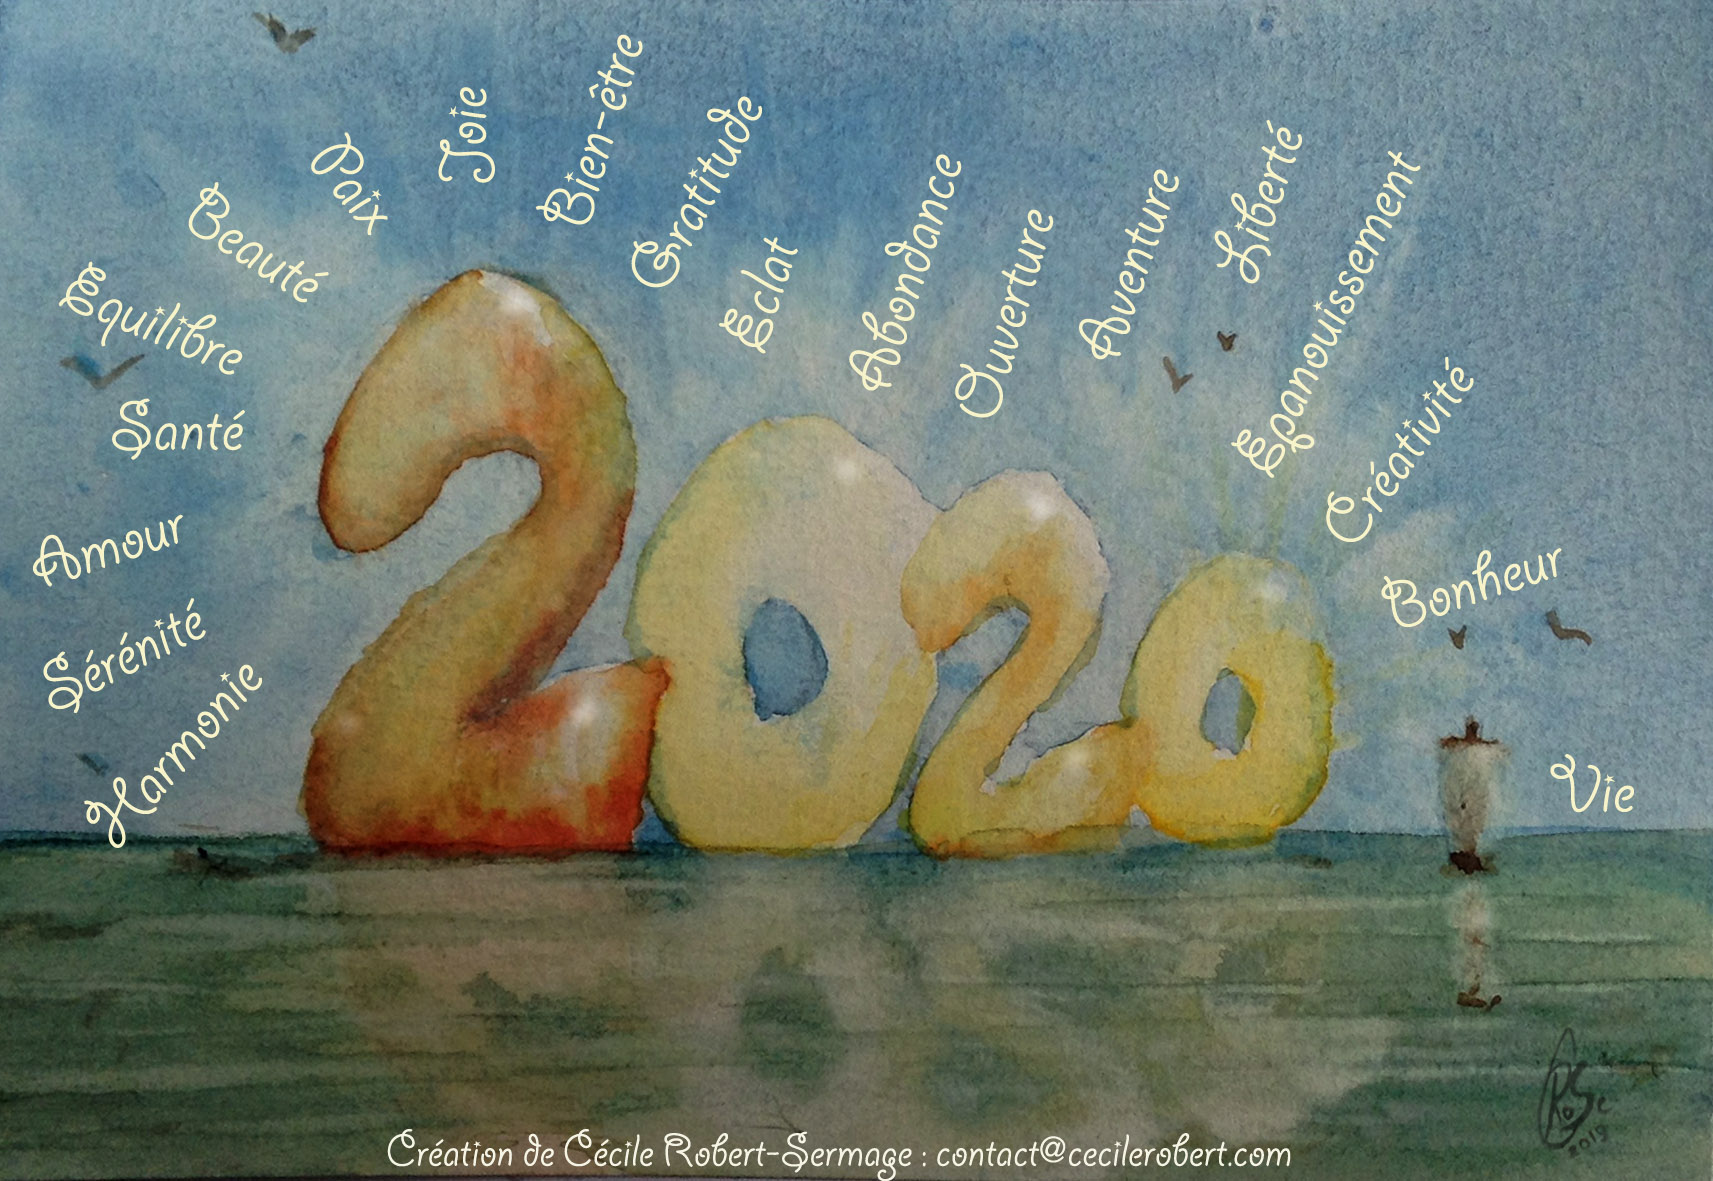 Harmonie
Sérénité
Amour
Santé
Equilibre
Beauté
Paix
Joie
Bien-être
Gratitude
Eclat
Abondance
Ouverture
Aventure
Liberté
Epanouissement
Créativité
Bonheur
Vie
2020
RoSe
2019
Création de Cécile Robert-Sermage : contact@cecilerobert.com